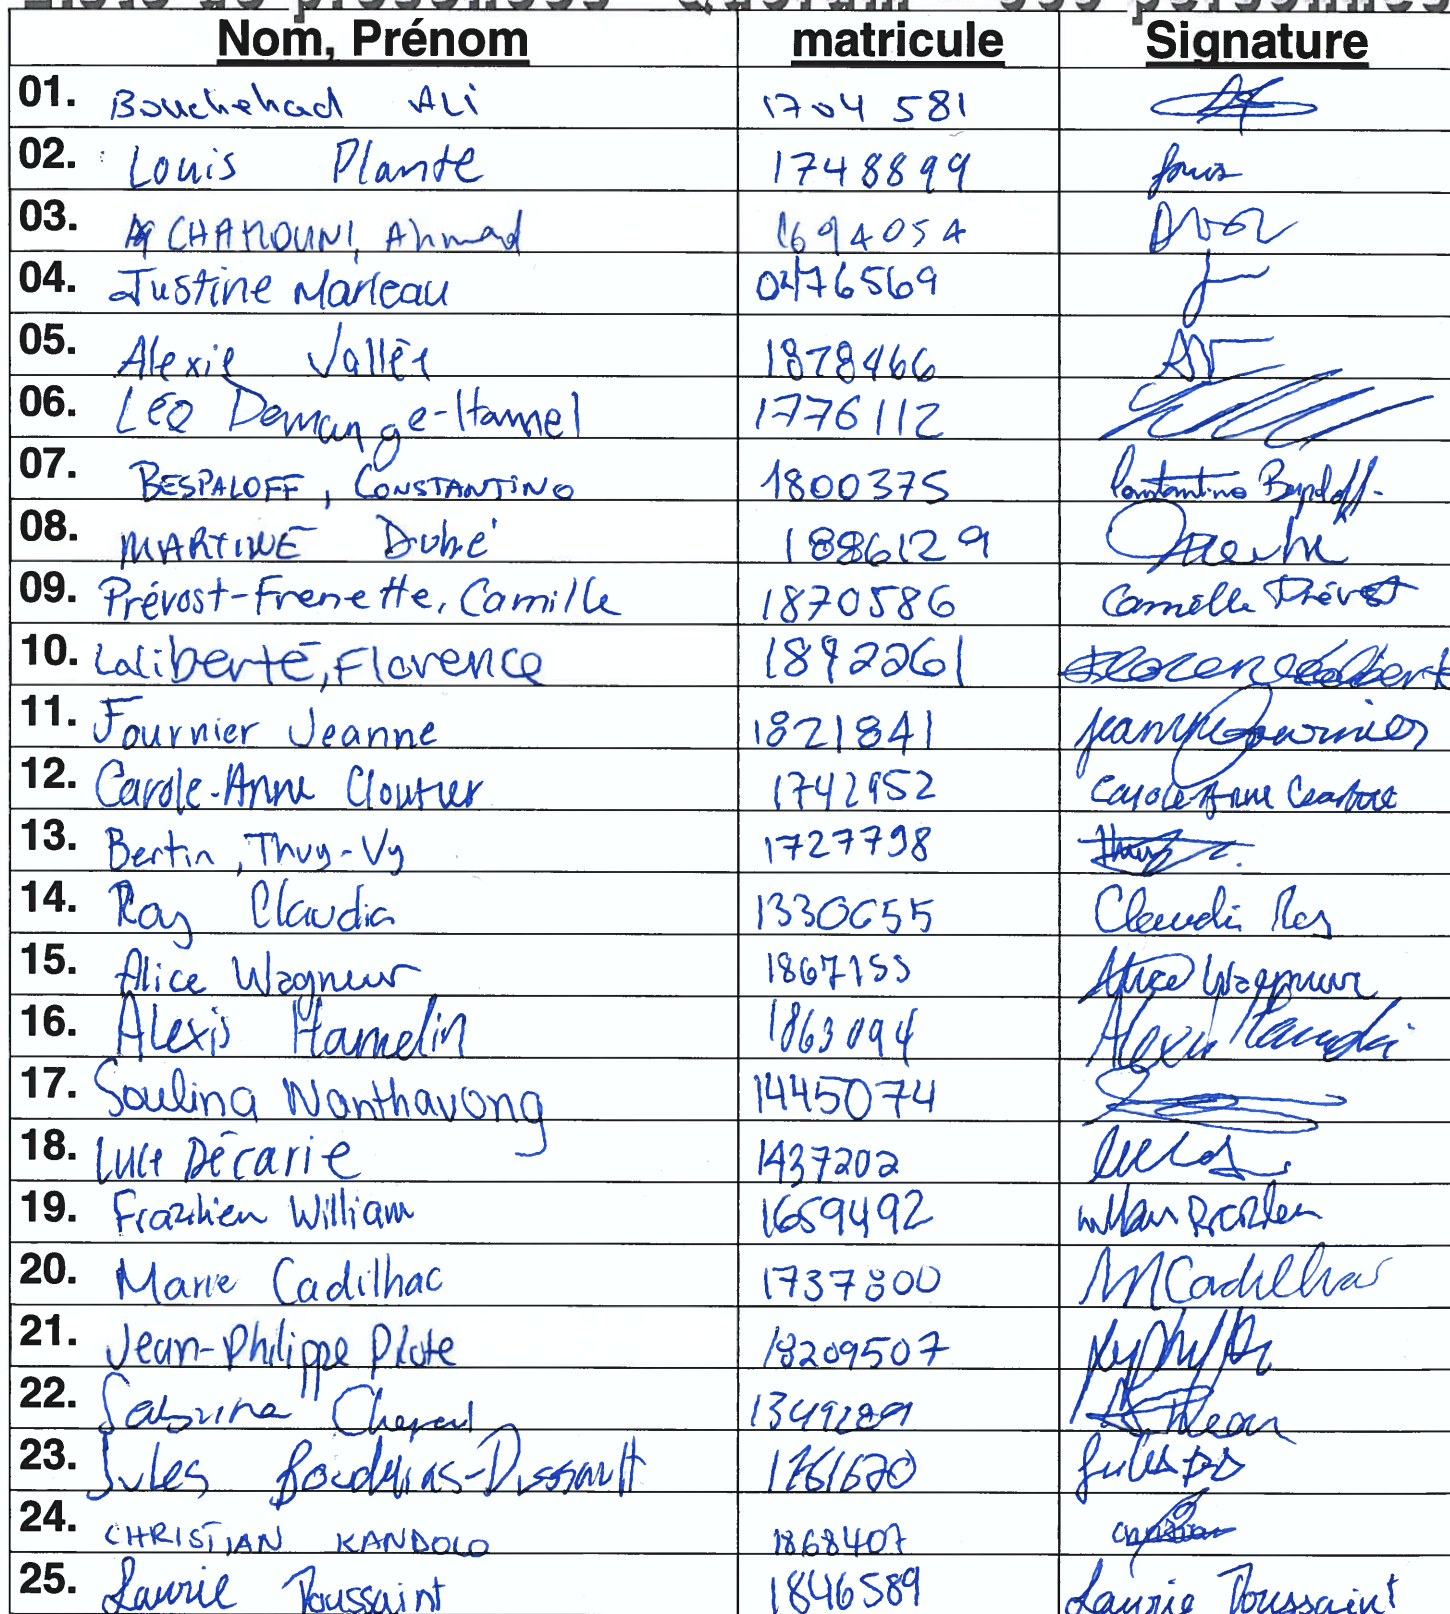 Nom, Prénom matricule Signature
01. Bouchehad ALi 1704 581
02. Louis Plante 1748899 Louis
03. CHAMOUNI, Ahmad 1694054
04. Justine Marleau 0476569
05. Alexie Vallée 1878466 AV
06. LÉO Demange-Hamel 1776112
07. BESPALOFF, CONSTANTINO 1800375 Constantino Bespaloff
08. MARTINE Dubé 1886129
09. Prévost-Frenette, Camille 1870586 Camille Prévost
10. Laliberté, Florence 1892261 Florence Laliberté
11. Fournier Jeanne 1821841 Jeanne Fournier
12. Carole-Anne Cloutier 1742952 Carole-Anne Cloutier
13. Bertin, Thuy-Vy 1727798 Thuy
14. Roy Claudia 1330655 Claudia Roy
15. Alice Wagneur 1867155 Alice Wagneur
16. Alexis Hamelin 1863094 Alexis Hamelin
17. Soulina Nanthavong 1445074
18. Luce Décarie 1437202
19. Frazilien William 1659492 William Frazilien
20. Marie Cadilhac 1737800 MCadilhac
21. Jean-Philippe Plote 18209507
22. Sabrina
23. Jules 1761670 Jules BD
24. CHRISTIAN KANDOLO 1868407 Christian
25. Laurie Toussaint 1846589 Laurie Toussaint